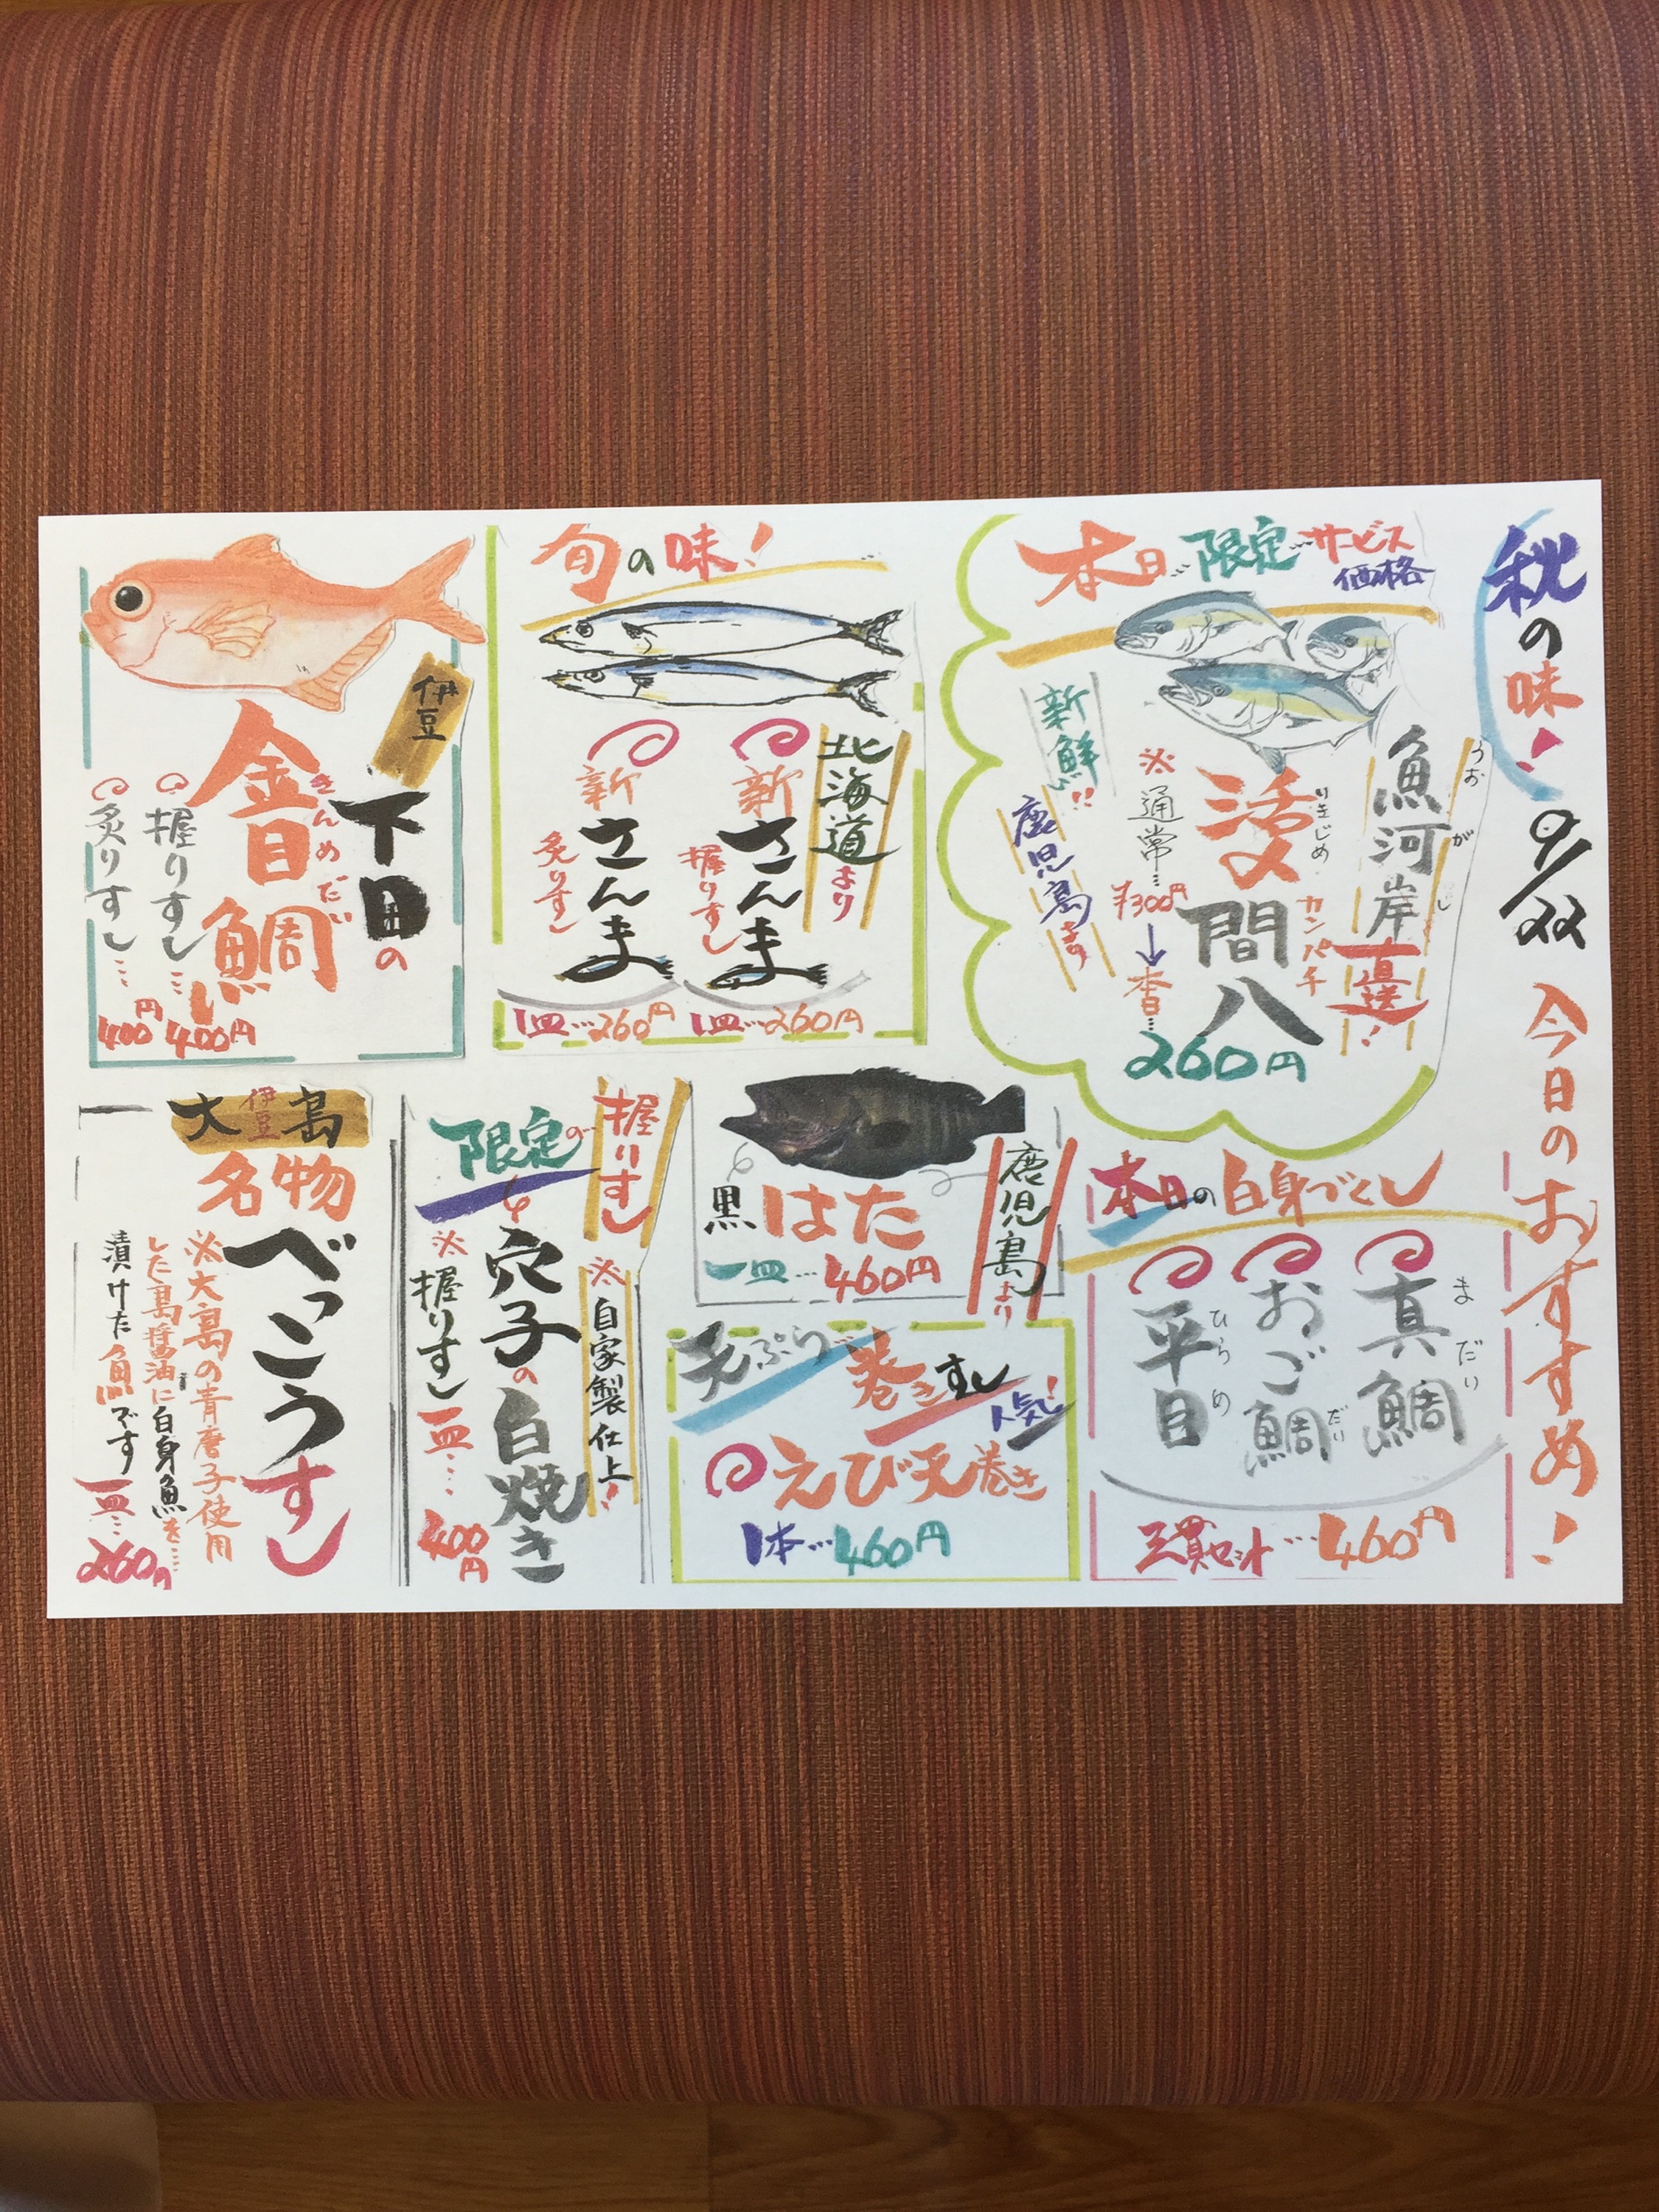 秋の味!
9/22
今日のおすすめ!
本日限定…サービス
価格
魚河岸
うおがし
直送!
活〆
いきじめ
間八
カンパチ
※通常…¥300円
↓
本日…
260円
新鮮!!
鹿児島より
旬の味!
北海道より
新さんま
握りすし
1皿…260円
新さんま
炙りすし
1皿…260円
伊豆
下田の
金目鯛
きんめだい
握りすし…400円
炙りすし…400円
本日の白身づくし
真鯛
まだい
おご鯛
だい
平目
ひらめ
三貫セット…460円
鹿児島より
黒はた
一皿…460円
天ぷら
巻きすし
人気!
えび天巻き
1本…460円
握りすし
限定の
※自家製仕上!
穴子の白焼き
※握りすし
一皿…400円
伊豆
大島
名物
べっこうすし
※大島の青唐子使用
した島醤油に白身魚を…
漬けた魚です
一皿…260円